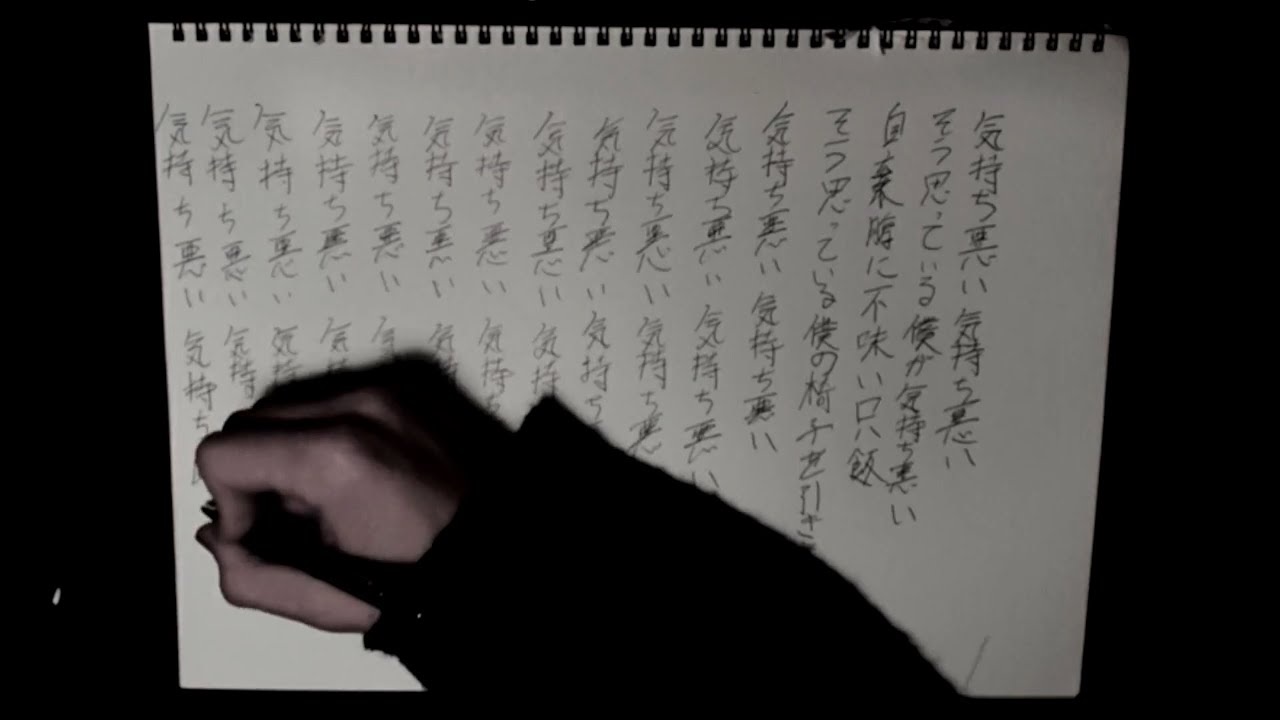 気持ち悪い 気持ち悪い
そう思っている僕が気持ち悪い
自棄腹に不味い只飯
そう思っている僕の椅子を引き
気持ち悪い 気持ち悪い
気持ち悪い 気持ち悪い
気持ち悪い 気持ち悪
気持ち悪い 気持ち
気持ち悪い 気持
気持ち悪い 気持ち
気持ち悪い 気持
気持ち悪い 気
気持ち悪い 気持
気持ち悪い 気持
気持ち悪い 気持
気持ち悪い 気持ち